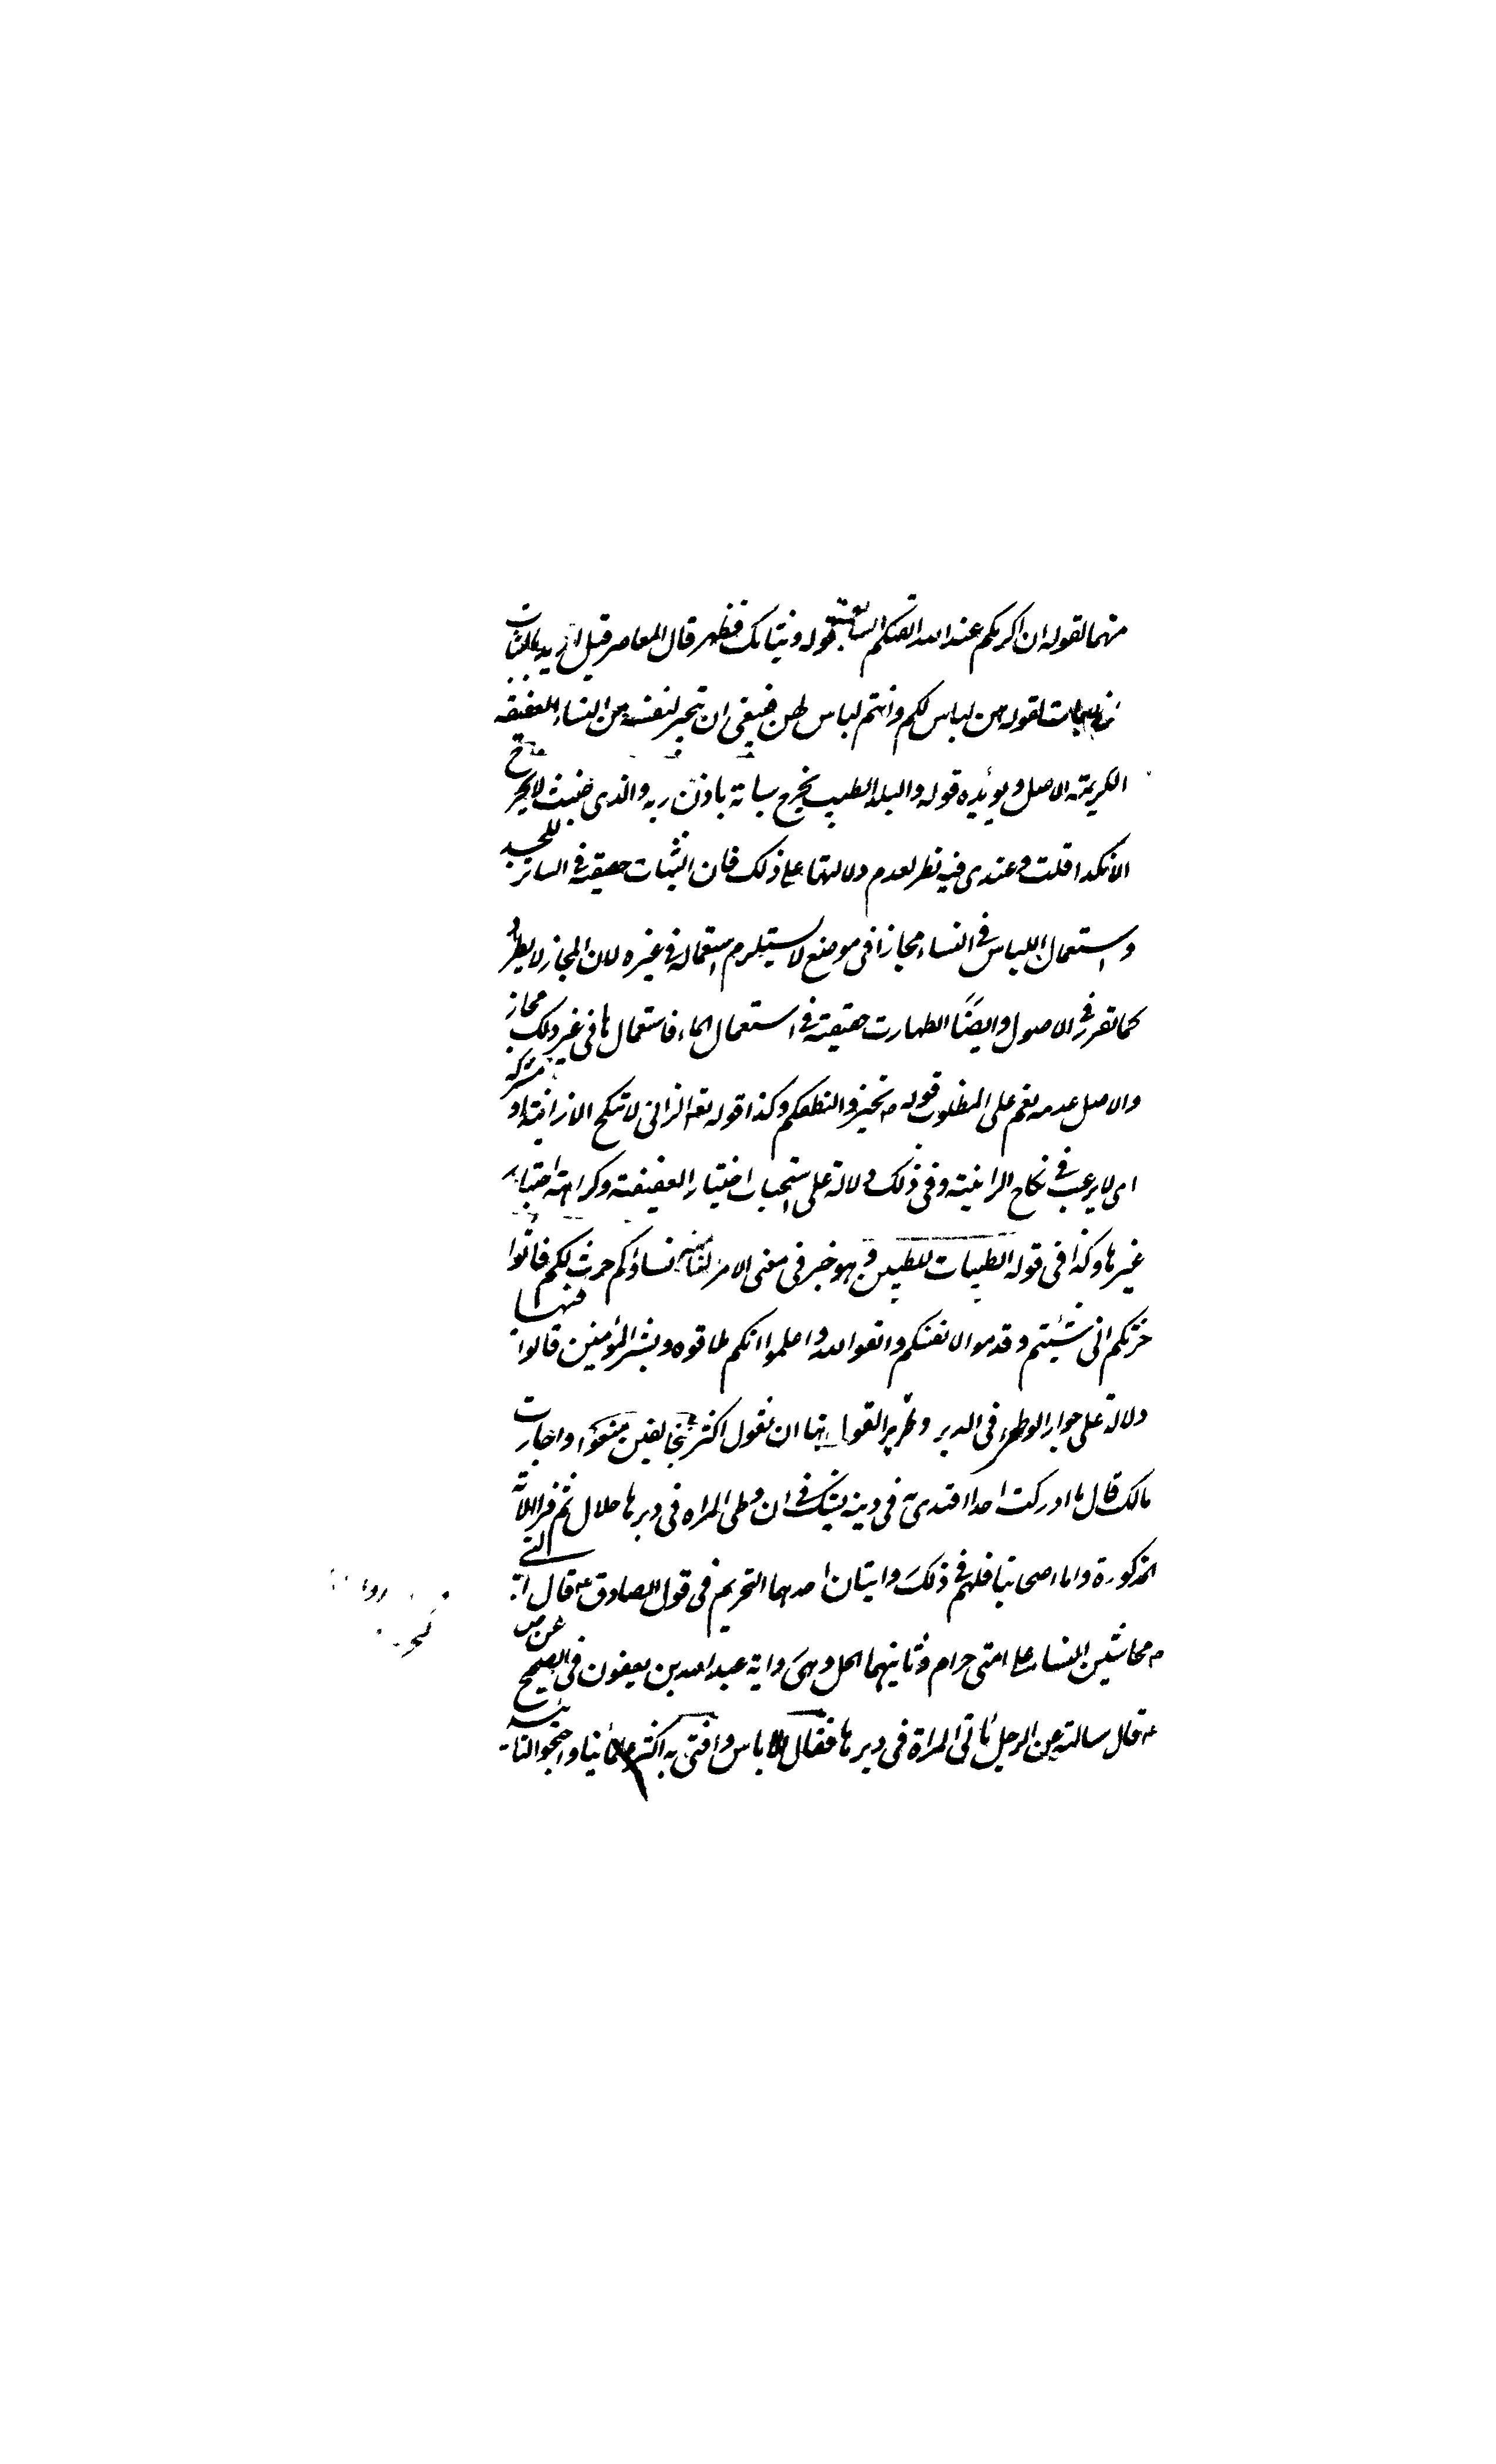 منهما لقوله ان اكرمكم عند الله اتقيكم السابعة قوله وثيابك فطهر قال المعاصر قيل اريد بالثياب
لقوله هن لباس لكم وانتم لباس لهن فينبغي ان يتخير لنفسه من النساء العفيفة
الكريمة الاصل ويؤيده قوله والبلد الطيب يخرج نباته باذن ربه والذي خبث لا يخرج
الا نكدا قلت وعندي فيه نظر لعدم دلالتها على ذلك فان الثياب حقيقة في الساتر للجسد
واستعمال اللباس في النساء مجازا في موضع لا يستلزم استعماله في غيره لان المجاز لا يطرد
كما تقرر في الاصول وايضا الطهارت حقيقة في استعمال الماء فاستعمال ها في غير ذلك مجاز
والاصل عدمه نعم على المطلوب قوله ص تخيروا لنطفكم وكذا قوله تعه الزاني لا ينكح الا زانية او مشركة
اى لا يرغب في نكاح الزانية وفي ذلك دلالة على استحباب اختيار العفيفة وكراهة اختيار
غير ها وكذا في قوله الطيبات للطيبين وهو خبر في معنى الامر الثامنة نساؤكم حرث لكم فاتوا
حرثكم انى شئتم وقدموا لانفسكم واتقوا الله واعلموا انكم ملاقوه وبشر المؤمنين قالوا فيها
دلالة على جواز الوطى في الدبر وتحرير القول هنا ان نقول اكثر مخالفين منعوا واجازت
مالك قال ما ادركت احدا اقتدى به في دينه يشك في ان وطى المراه في دبر ها حلال ثم قرا الاية
المذكورة واما اصحابنا فلهم في ذلك روايتان احدهما التحريم في قول الصادق ع قال النبي
ص محاش النساء على امتي حرام وثانيهما الحل وهي رواية عبد الله بن يعفور في الصحيح عن ص
ع قال سالته عن الرجل ياتي المراة في دبر ها فقال لا باس وافتى به اكثر علمائنا واحتجوا